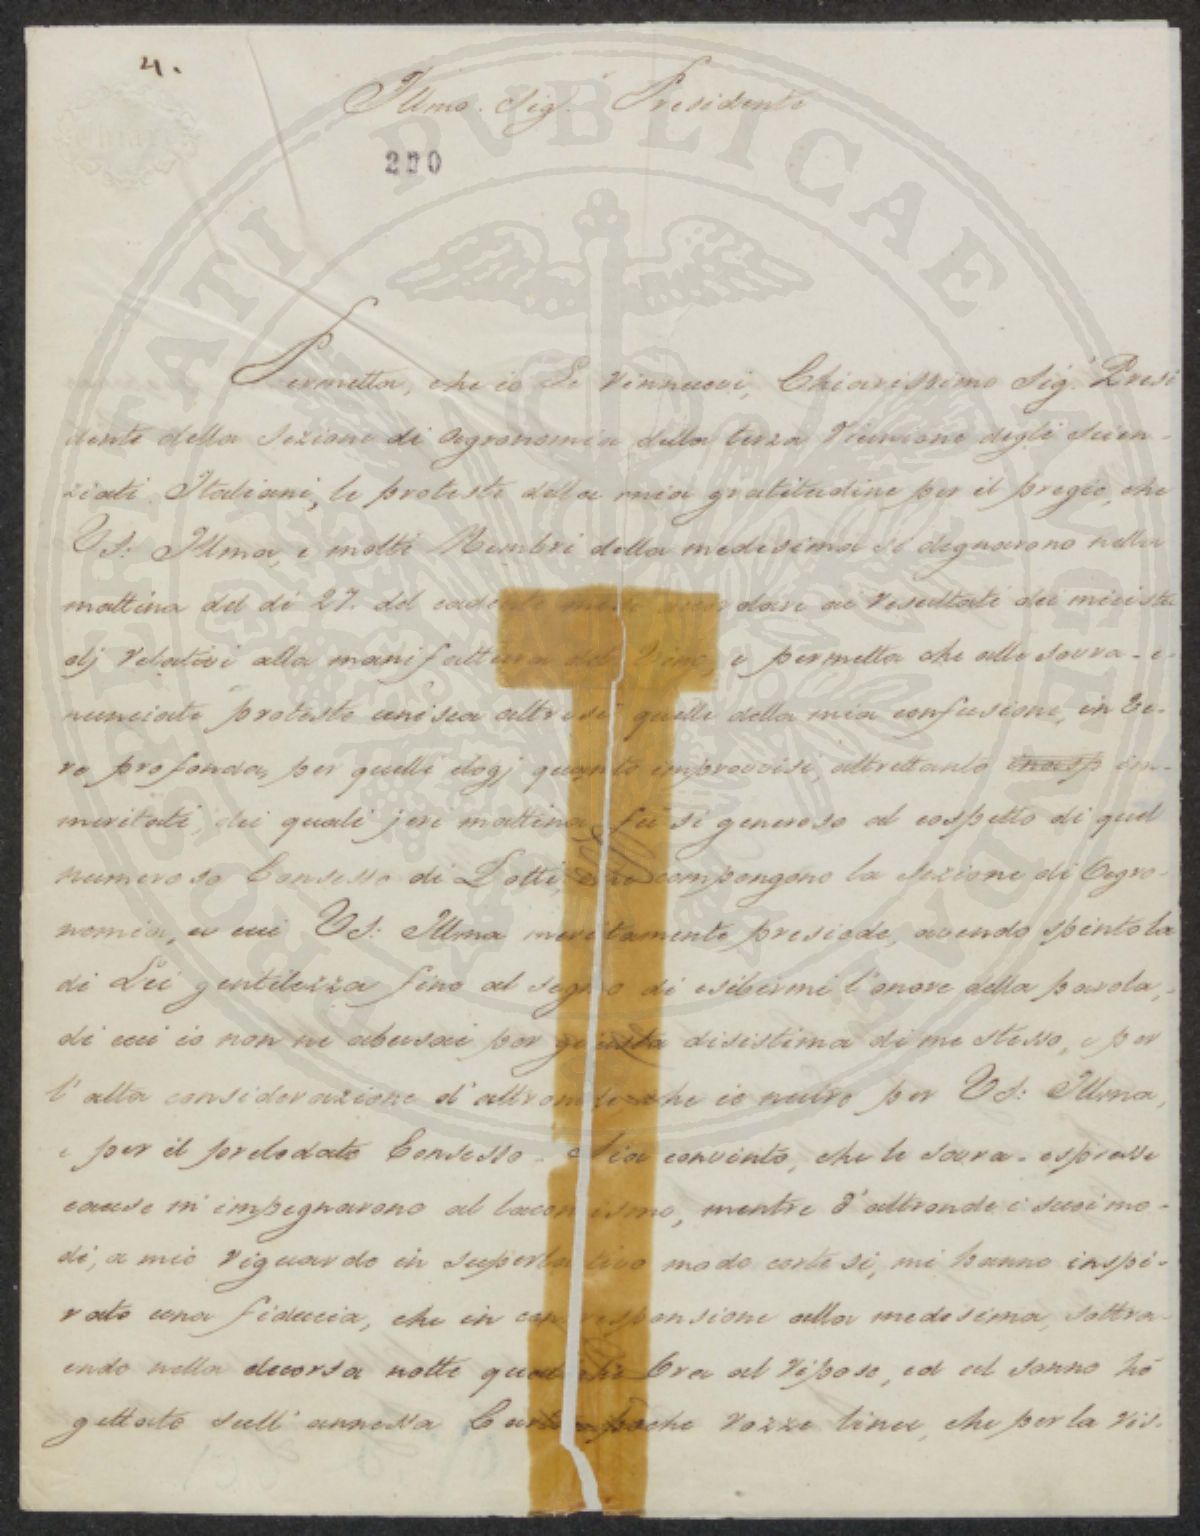 4.
Illmo. Sig.r Presidente
200
Permetta, che io Le rinnuovi, Chiarissimo Sig.r Presi
dente della Sezione di Agronomia della terza Riunione degli Scien-
ziati Italiani, le proteste della mia gratitudine per il pregio, che
VS: Illma, e molti Membri della medesima si degnarono nella
mattina del dì 27. del cadente mese accordare ai resultati dei miei stu
dj relativi alla manifattura del Vino, e permetta che alle sovra-e-
nunciate proteste unisca altresì quelle della mia confusione, in ve-
ro profonda, per quelli elogj quanto improvvisi, altrettanto im-
meritati, dei quali jeri mattina fù sì generoso al cospetto di quel
numeroso Consesso di Dotti, che compongono la Sezione di Agro-
nomia, a cui VS: Illma meritamente presiede, avendo spinto la
di Lei gentilezza fino al segno di esibirmi l'onore della parola,
di cui io non ne abusai per giusta disistima di me stesso, e per
l'alta considerazione d'altronde che io nutro per VS: Illma,
e per il prelodato Consesso. Sia convinto, che le sovra-espresse
cause m'impegnarono al laconismo, mentre d'altronde i suoi mo-
di, a mio riguardo in superlativo modo cortesi, mi hanno inspi-
rato una fiducia, che in corresponsione alla medesima, sottra-
endo nella decorsa notte qualche Ora al riposo, ed al sonno hò
gettato sull'annessa Carta poche rozze linee, che per la ris-
PVBLICAE